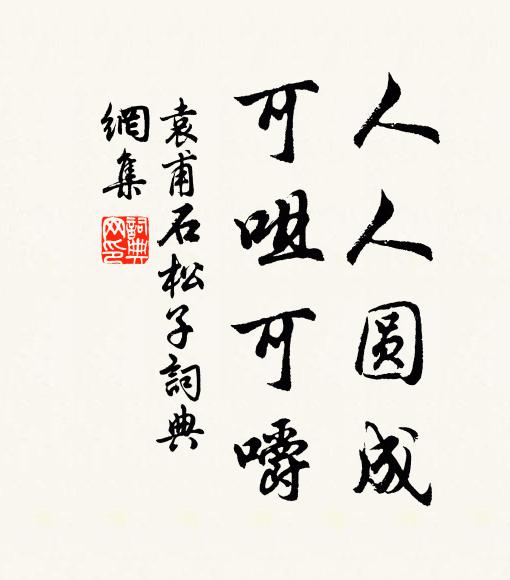 人人圆成
可咀可嚼
袁甫石松子詞典
網集
詞典網印